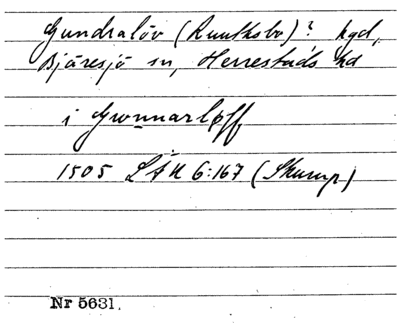 Gundralöv (Ruuthsbo)? hgd,
Bjäresjö sn, Herrestads hd
i Gwnnarløff
1505 LÅU 6:167 (Skurup)
Nr 5631.